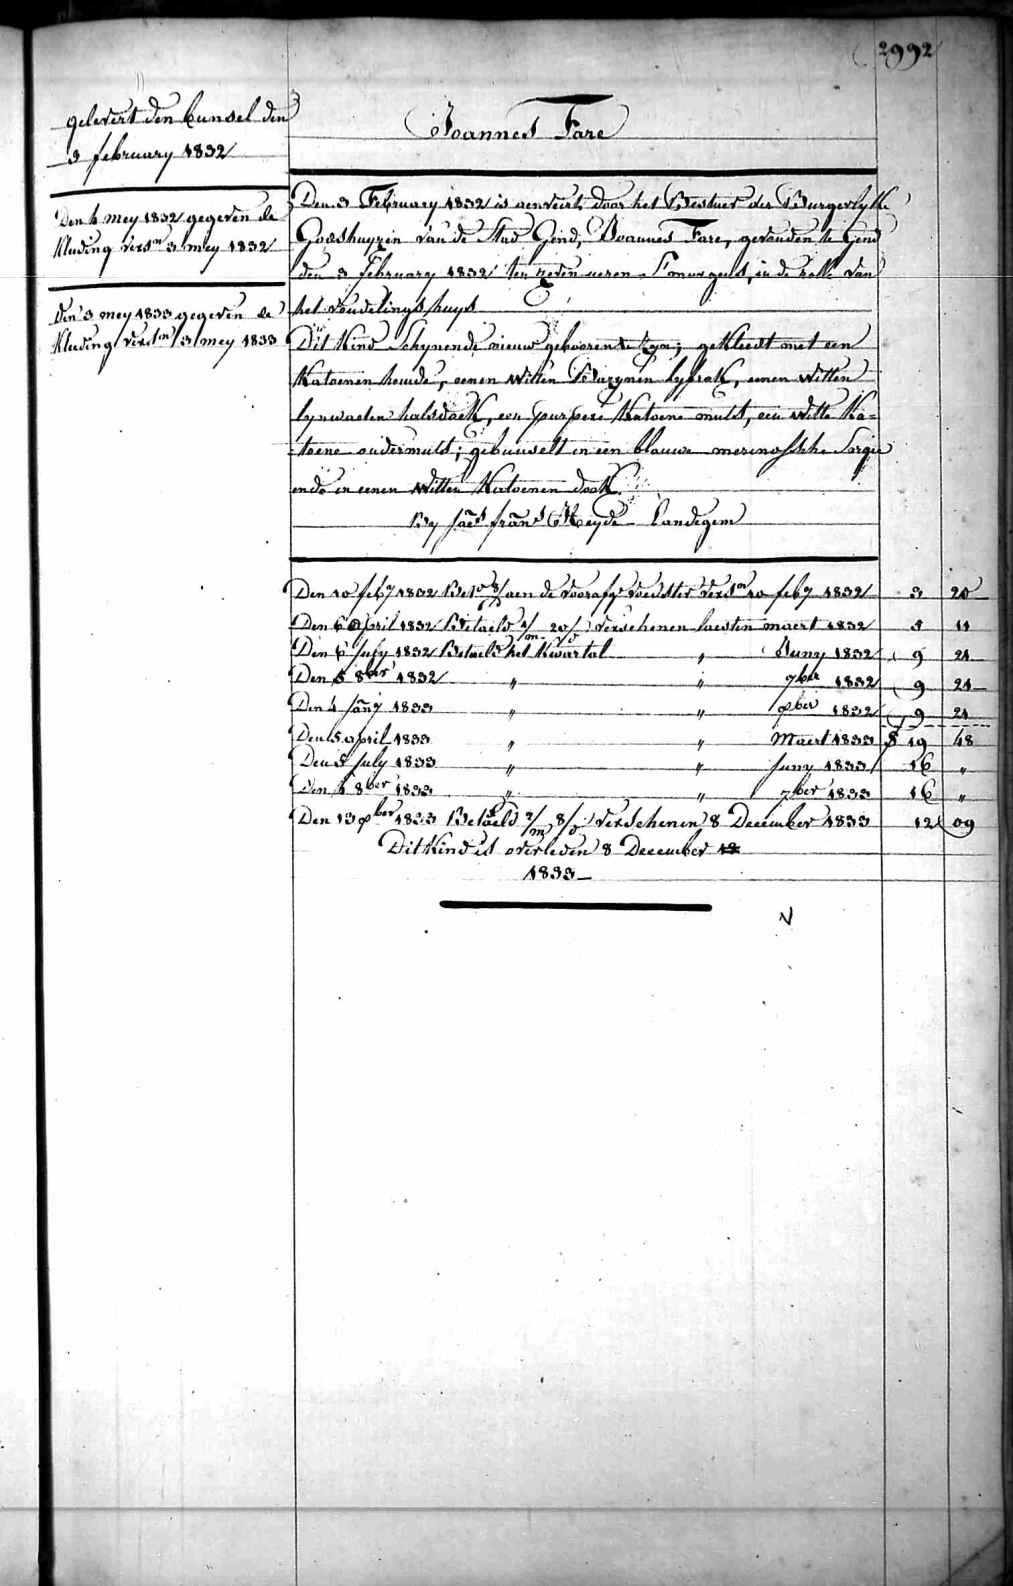 2992
gelevert den bunsel den
3 february 1832
Den 4 mey 1832 gegeven de
Kleeding versn 3 mey 1832
Den 3 mey 1833 gegeven de
Kleeding versn 3 mey 1833
Joannes Fare
Den 3 February 1832 is aenveert door het Bestuer der Burgerlyke
Godshuyzen van de Stad Gend, Joannes Fare, gevonden te Gend
den 3 february 1832 ten zeven uren s'morgens, in de rolle van
het vondelings huys
Dit Kind Schynende nieuw gebooren te zyn; gekleedt met een
Katoenen hemde, eenen witten lyfrok, eenen witten
lynwaeten halsdoek, een purpere Katoene muts, een witte Ka=
toene ondermuts; gebunselt in een blauwe merinossche Sargie
ende in eenen witten Katoenen doek.
By frans Heyde Landegem
Den 10 feby 1832 aen de voorafge voedster versn 10 feby 1832 3 20
Den 6 April 1832 Betaeld 1/m 20/d verschenen laesten maert 1832 5 11
Den 6 July 1832 Betaeld het Kwartal " Juny 1832 9 21
Den 5 8ber 1832 " " 7ber 1832 9 21
Den 4 Jany 1833 " " xber 1832 9 21
Den 5 april 1833 " " Maert 1833 19 48
Den 5 July 1833 " " Juny 1833 16 "
Den 4 8ber 1833 " " 7ber 1833 16 "
Den 13 xber 1833 Betaeld 2/m 8/d verschenen 8 December 1833 12 09
Dit Kind is overleden 8 December 18
1833